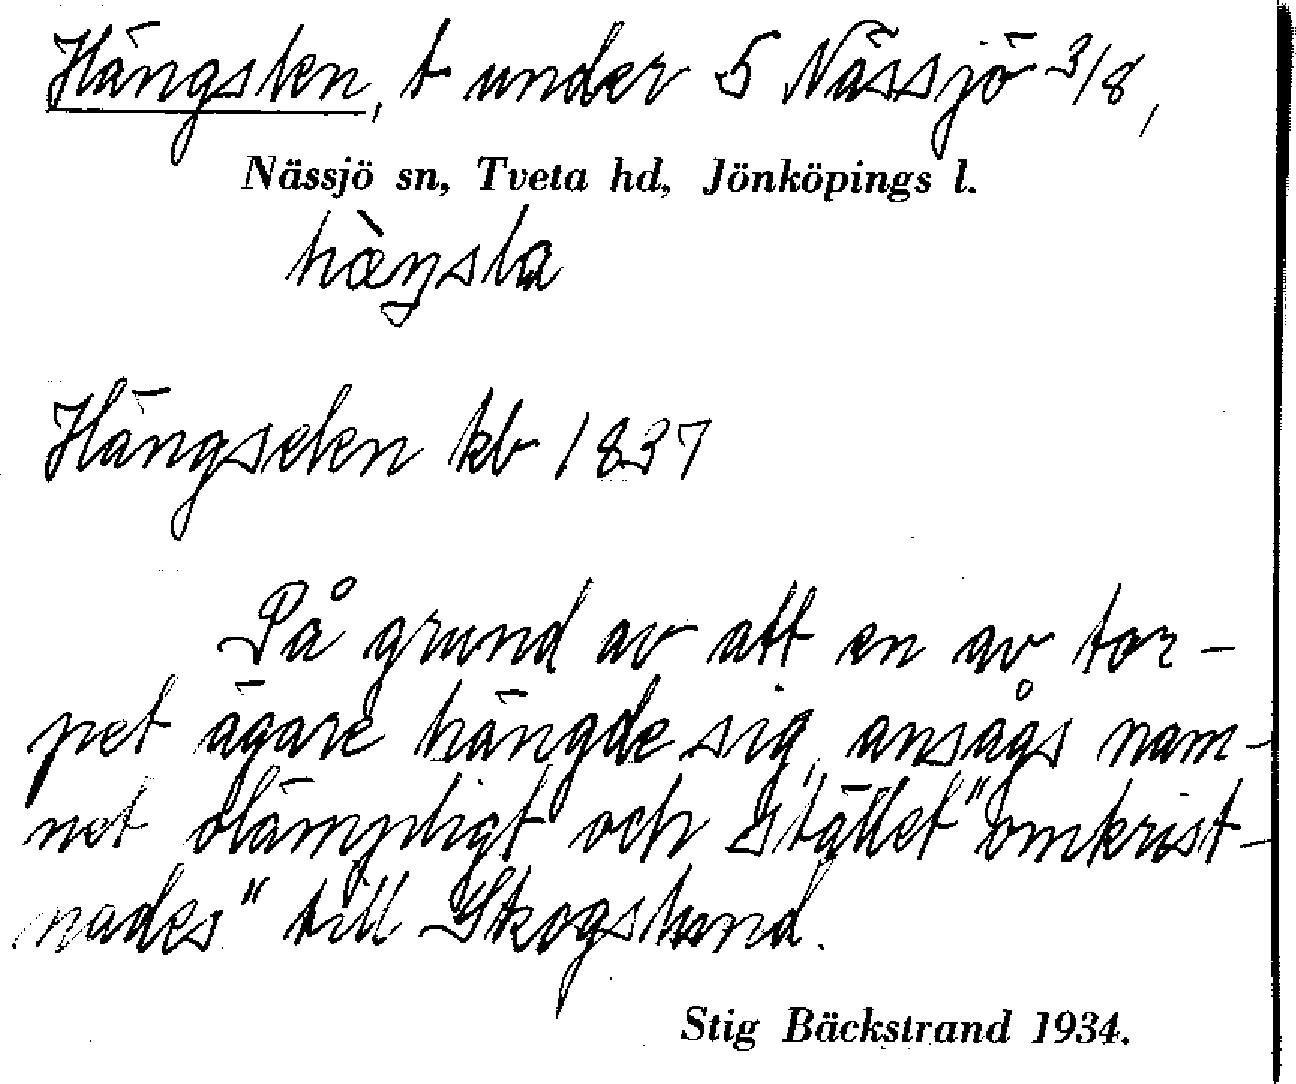 Hängslen, t under 5 Nässjö 3/8,
Nässjö sn, Tveta hd, Jönköpings l.
hæ̀ŋsla
Hängselen kb 1837
På grund av att en av tor-
pet ägare hängde sig, ansågs nam-
net olämpligt och stället "omkrist-
nades" till Skogslund.
Stig Bäckstrand 1934.